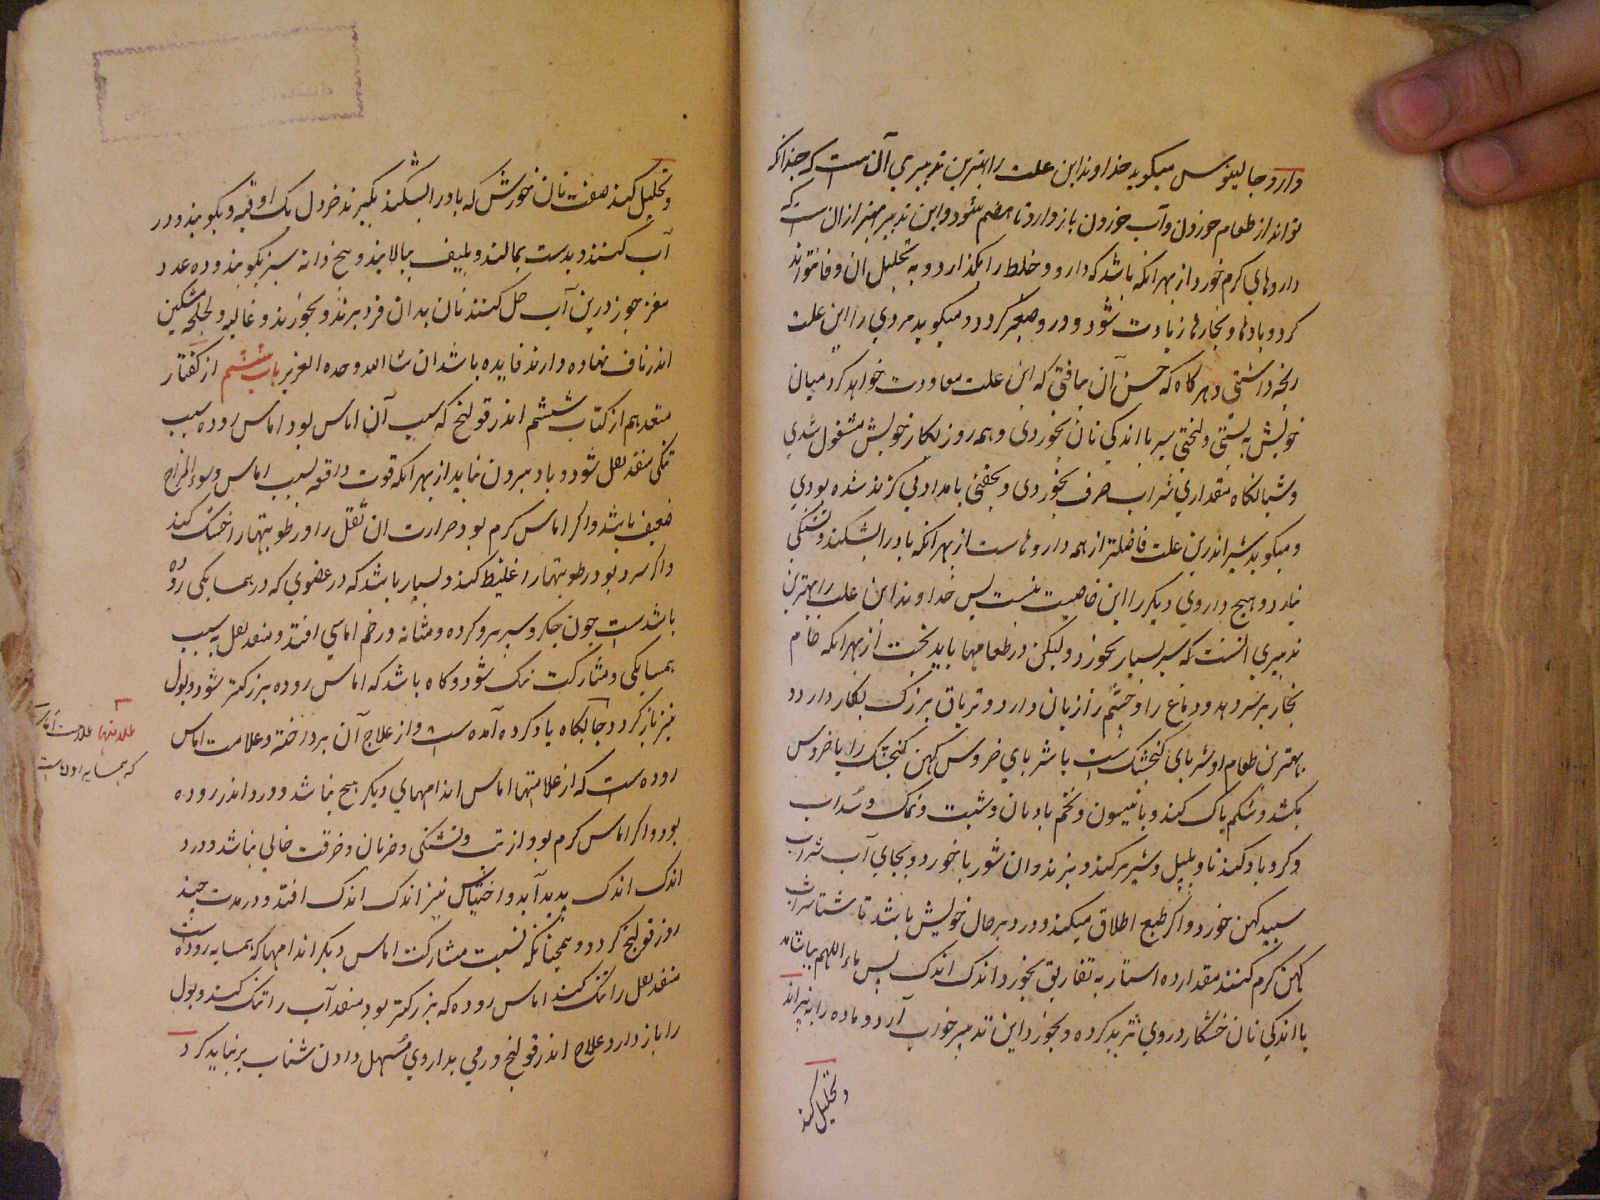 دارد و جالینوس میکوید خداوند این علت را بهترین تدبیری آن ست که جندانکه
تواند از طعام خوردن و آب خوردن باز دارد تا هضم شود و این تدبیر بهتر از ان ست که
داروهای کرم خورد از بهر انکه باشد که دارو خلط را بکدازد و به تحلیل ان وفا نتواند
کرد و بادها و بخارها زیادت شود و درد صعبتر کردد و میکوید مردی را این علت
رنجه داشتی و هرکاه که حس آن یافتی که این علت معاودت خواهد کرد میان
خویش به بستی و لختی سیر با اندکی نان بخوردی و همه روز بکار خویش مشغول شدی
و شبانکاه مقداری شراب صرف بخوردی و بخفتی بامداد بی کزند شده بودی
و میکوید سیر اندرین علت فاضلتر از همه داروهاست از بهر انکه باد را بشکند و تشنکی
نیارد و هیج داروی دیکر را این خاصیت نیست بس خداوند این علت را بهترین
تدبیری انست که سیر بسیار بخورد ولیکن در طعامها باید بخت از بهر انکه خام
بخار بر سر دهد و دماغ را و جشم را زیان دارد و تریاق بزرک بکار دارد و
بهترین طعام او شربای کنجشک ست یا شربای خروس کهن کنجشک را یا خروس
بکشد و شکم باک کند و بانیسون و تخم بادیان و شبت و نمک و سداب
و کرویا و کمند نا و بلبل و سیر بر کند و ببزند و ان شوربا خورد و بجای آب شراب
سبید کهن خورد و اکر طبع اطلاق میکند و درد بر حال خویش باشد تا شتا شراب
کهن کرم کنند مقدار ده استار به تفاریق بخورد اندک اندک بس ماء اللهم بیاشامد
با اندکی نان خشکار در وی ثرید کرده و بخورد این تدبیر خواب آرد و ماده را به بزاند
و تحلیل کند
و تحلیل کند صفت نان خورش که باد را بشکند بکیرند خردل یک اوقیه و بکوبند و در
آب کنند و بدست بمالند و بلیف ببالایند و بنج دانه سیر بکوبند و ده عدد
مغز جوز درین آب حل کنند نان بدان فرو برند و بخورند و غالیه و لخلخه مشکین
اندر ناف نهاده دارند فایده باشد ان شا الله وحده العزیز باب ششم از کفتار
هفدهم از کتاب ششم اندر قولنج که سبب آن اماس بود اماس روده سبب
تنکی منفذ ثفل شود و باد بیرون نیاید از بهر انکه قوت دافعه بسبب اماس و سوء المزاج
ضعیف باشد و اکر اماس کرم بود حرارت ان ثفل را و رطوبتها را خشک کند
و اکر سرد بود رطوبتها را غلیظ کند و بسیار باشد که در عضوی که در همسایکی روده
باشد ست جون جکر و سبرز و کرده و مثانه و رحم اماسی افتد و منفذ ثفل به سبب
همسایکی و مشارکت تنک شود و کاه باشد که اماس روده بزرکتر شود و بول
نیز باز کردد جنانکه بجایکاه یاد کرده آمده ست و از علاج آن برداخته و علامت اماس
روده ست که از علامتها اماس اندامهای دیکر هیج نباشد و درد اندر روده
بود و اکر اماس کرم بود از تب و تشنکی و ضربان و حرقت خالی نباشد و درد
اندک اندک بدید آید و احتباس نیز اندک اندک افتد و در مدت جند
روز قولنج کردد و همجنانکه نسبت مشارکت اماس دیکر اندامها که همسایه روده ست
منفذ ثفل را تنک کند اماس روده که بزرکتر بود منفذ آب را تنک کند و بول
را باز دارد علاج اندر قولنج ورمی بداروی مسهل دادن شتاب بر نباید کرد
علامتها علامت اماس
که همسایه روده ست